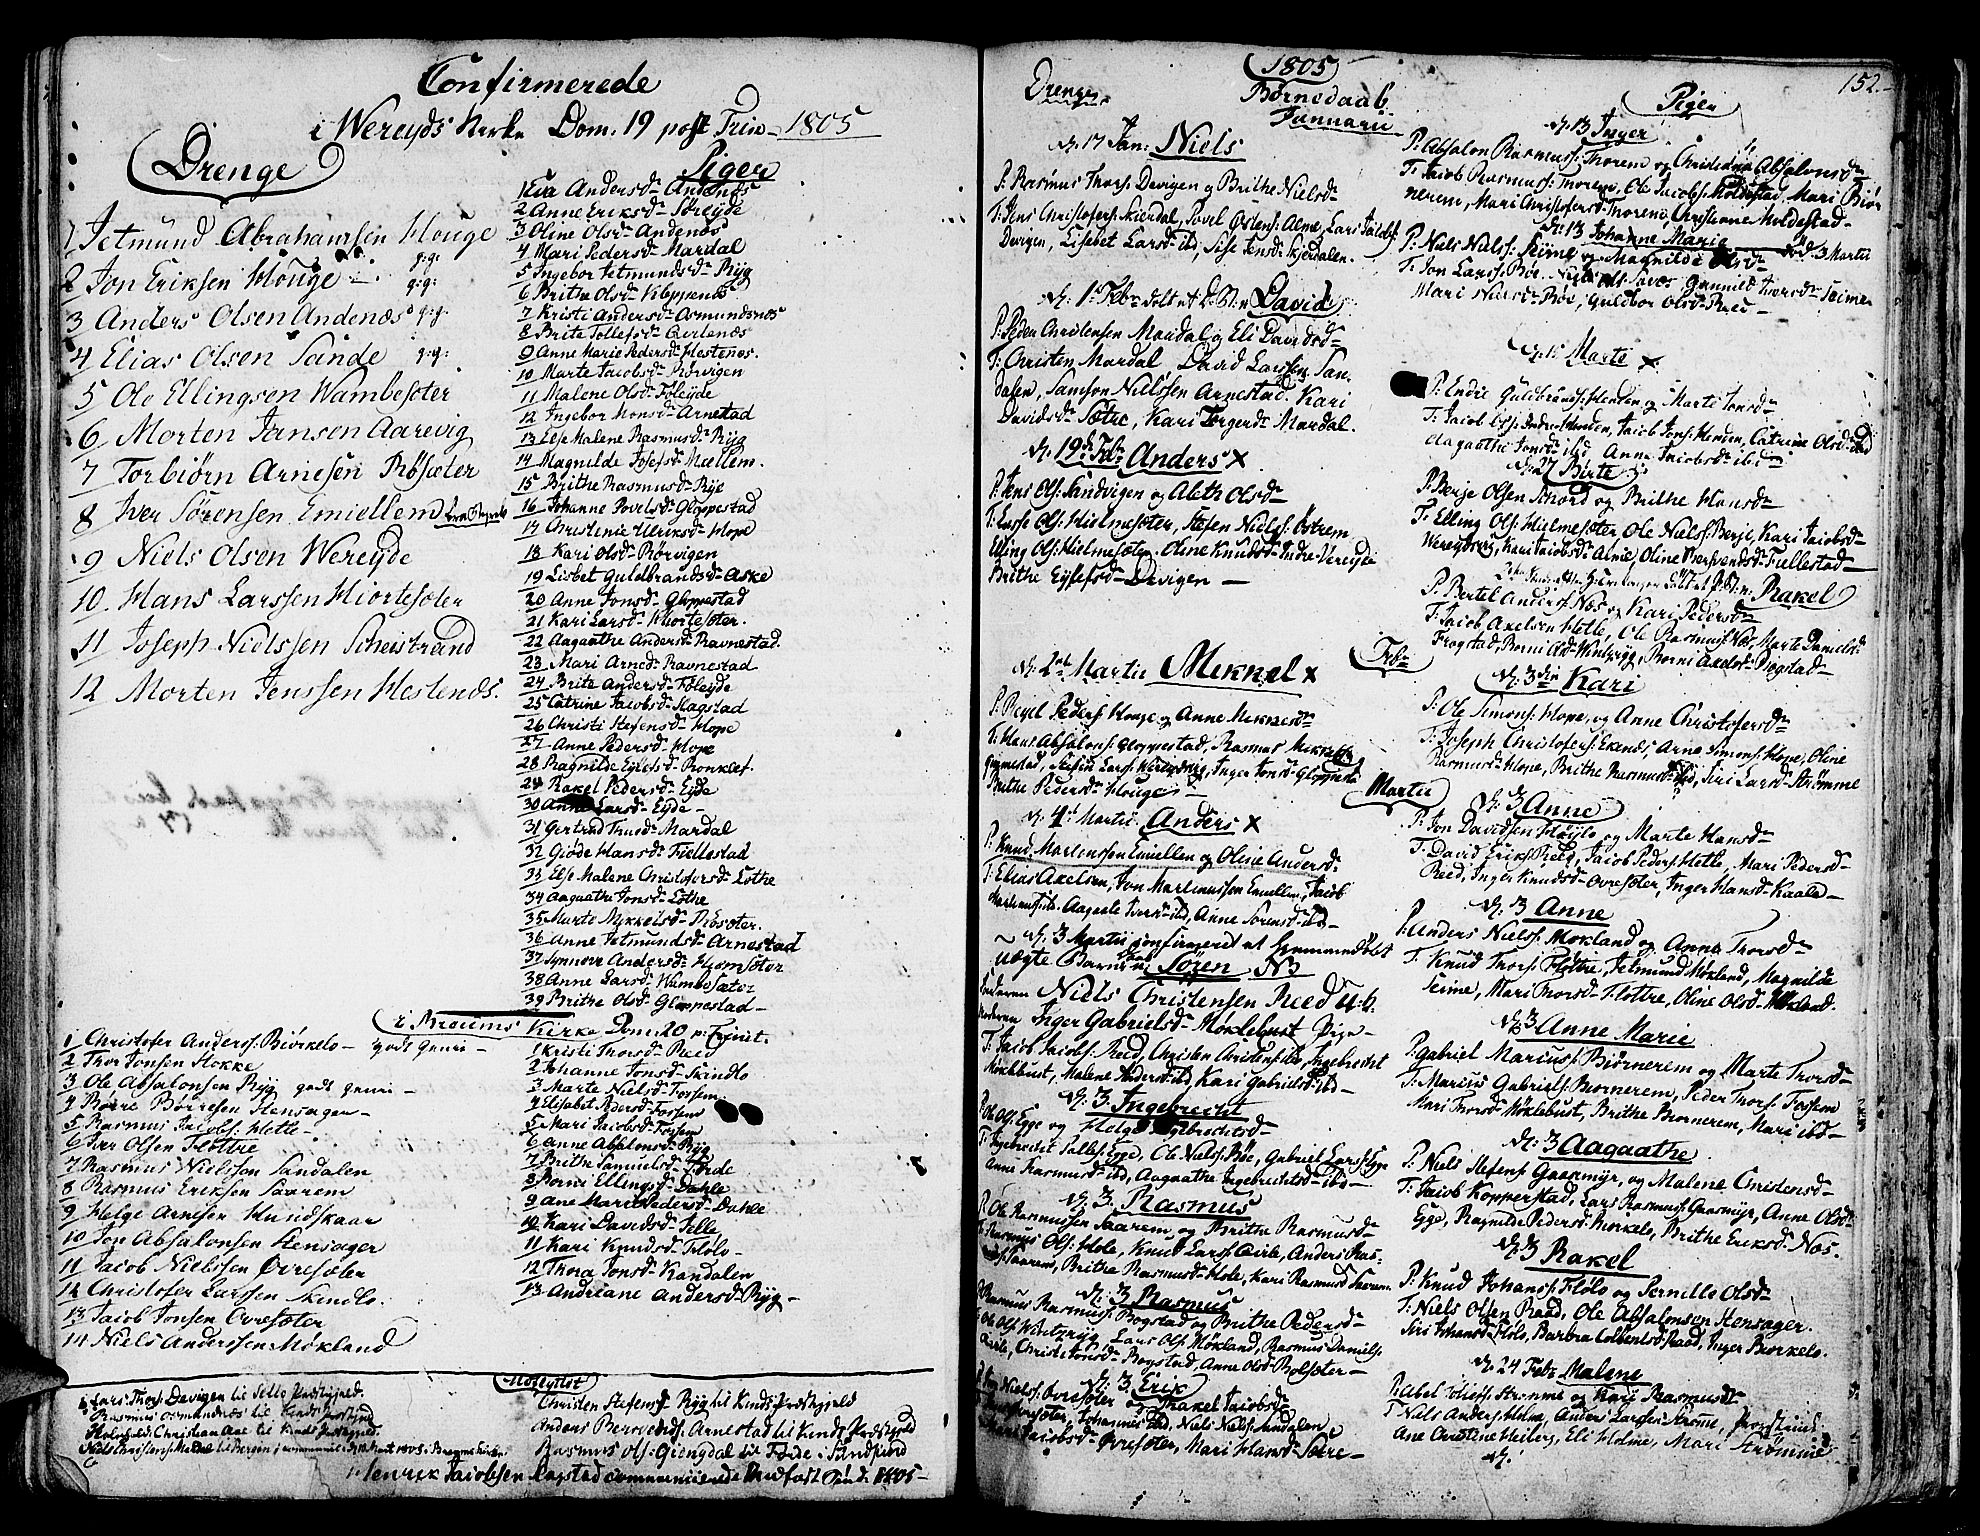 Confirmerede
i Wereyds Kirke Dom. 19 post Trin - 1805
Drenge
1 Jetmund Abrahamsen Houge
2 Jon Eriksen Houge - g:g:
3 Anders Olsen Andenæs g:g:
4 Elias Olsen Sande g:g:
5 Ole Ellingsen Wambesøter
6 Morten Jansen Aarevig
7 Torbiørn Arnesen Røsæter
8 Iver Sørensen Emiellem
9 Niels Olsen Wereyde
10. Hans Larssen Hiortesøter
11 Joseph Nielssen Scheistrand
12 Morten Jenssen Hestenæs.
Piger
1 Eva Andersd. Andenæs
2 Anne Eriksd. Søreyde
3 Oline Olsd. Andenæs
4 Mari Pedersd. Mardal
5 Ingebor Jetmundsd. Ryg
6 Brithe Olsd. Kleppenæs
7 Kristi Andersd. Osmundsnæs
8 Brite Tollefsd. Qvilenæs
9 Anne Marie Pedersd. Hestenæs.
10 Marte Jacobsd. Rørvigen
11 Malene Olsd. Føleyde
12 Ingebor Monsd. Arnestad
13 Else Malene Rasmusd. Ryg
14 Magnilde Josefsd. Mællem.
15 Brithe Rasmusd. Rye
16 Johanne Povelsd. Gloppestad
17 Christenie Ulriksd. Hope
18 Kari Olsd. Rørvigen
19 Lisbet Guldbrandsd. Aske
20 Anne Jonsd. Gloppestad
21 Kari Larsd. Hiortesøter.
22 Aagaathe Andersd. Ravnestad.
23 Mari Arned. Ravnestad
24 Brite Andersd. Føleyde
25 Catrine Jacobsd. Hagstad
26 Christi Stefensd. Hope
27 Anne Pedersd. Hope
28 Ragnilde Eylefsd. Ronklef.
29 Rakel Pedersd. Eyde
30 Anne Larsd. Eyde -
31 Gertrud Thued. Mardal
32 Giøde Hansd. Fiellestad
33 Else Malene Christofersd. Lothe
34 Aagaathe Jonsd. Lothe
35 Marte Mikkelsd. Røsøter.
36 Anne Jetmundsd. Arnestad
37 Synnove Andersd. Hiemsøter
38 Anne Larsd. Wambesæter
39 Brithe Olsd. Gloppestad -
i Breums Kirke Dom. 20 p: Trinit.
1 Christofer Anderss: Biørkelo - godt gem: -
2 Thor Jonsen Hokke
3 Ole Absalonsen Ryg godt gem: -
4 Børre Børresen Hensagen -
5 Rasmus Jacobs: Hetle -
6 Iver Olsen Flottre
7 Rasmus Nielssen Sandalen
8 Rasmus Eriksen Saarem
9 Helge Arnesen Hundskaar
10 Jon Absalonsen Hensager
11 Jacob Nielssen Øvresøter
12 Christofer Larssen Skindlo.
13 Jacob Jonsen Ovresøter
14 Niels Anderssen Møkland
1 Kristi Thorsd. Reed
2 Johanne Jonsd. Skindlo
3 Marte Nielsd. Fossem
4 Elisabet Pedersd. Fossem
5 Mari Jacobsd. Fossem
6 Anne Absalonsd. Ryg
7 Brithe Samuelsd. Førde
8 Borni Ellingsd. Dahle
9 Ane Marie Pedersd. Dahle
10 Kari Davidsd. Felle
11 Kari Knudsd. Flølo -
12 Thora Jonsd. Kandalen
13 Andriane Andersd. Ryg -
Lars Thors: Devigen til Selle Prestgield.
Christen Stefensf. Ryg til Kinds Prestgield
Anders Berendsf. Arnestad til Kinds Prestgield
Rasmus Ols: Giengdal til Førde i Sundfiord
Henrik Jacobsen Rogstad
1805
152.
Drenge
Børnedaab
Januarii
d. 17 Jan: Niels
P: Rasmus Thors. Devigen og Brithe Nielsd.
T: Jens Christofers: Skierdal, Povel Østens: Alme, Lars Jacobs:
Devigen, Lisebet Larsd. ibd, Sise Jensd. Skierdalen.
d. 1. Febr. David
P: Peder Christensen Mardal og Eli Davidsd.
T: Christen Mardal David Larssen San-
dalen, Samson Nielssen Arnestad. Kari
Davidsd. Sætre, Kari Torgerd. Mardal.
d. 19de Febr. Anders X
P: Jens Ols: Sandvigen og Aleth Olsd.
T: Lasse Ols: Hielmesøter, Stefen Niels: Østrem
Elling Ols: Hielmesøter. Oline Knudsd. Indre Wereyde
Brithe Eylefsd. Devigen -
Febr.
d. 2den Martii Mikkel X
P: Reyel Peders: Houge og Anne Mikkelsd.
T: Hans Absalons: Gloppestad, Rasmus Mikkels:
Brithe Pedersd. Houge -
Martii
d. 4de Martii. Anders X
P: Knud Martenssen Emiellen og Oline Andersd.
T: Elias Axelsen, Jon Martinussen Emiellem, Jacob
Martinus: ib. Aagaate Iversd. ibd, Anne Sørensd. ibd -
d. 3 Martii confirmeret at hiemmedøbt
uægte Barn: Søren N3
Faderen Niels Christensen Reed u.b.
Moderen Inger Gabrielsd. Møklebust Pige -
T: Jacob Jacobs: Reed, Christen Christens: ibd, Ingebrecht
Møklebust, Malene Andersd. ibd, Kari Gabrielsd. ibd -
d. 3. Ingebrecht
P: Ole Ols: Egge og Helge Ingebrechtsd.
T: Ingebrecht Palles: Egge, Ole Niels: Bøe, Gabriel Lars: Egge
Anne Rasmusd. ibd, Aagaathe Ingebrechtsd. ibd -
d. 3. Rasmus
P: Ole Rasmussen Saarem og Brithe Rasmusd.
T: Rasmus Ols: Hole, Knud Lars: Qvile, Anders Ras-
mus: Saarem, Brithe Rasmusd. Hole, Kari Rasmusd. Saarem.
d. 3 Rasmus
P: Rasmus Rasmuss: Rogstad og Brithe Pedersd.
T: Ole Ols: Winteryg, Lars Ols: Møkland, Rasmus Daniels:
Christi Jonsd. Rogstad, Anne Olsd. Bolsøter -
d. 3. Erik
Niels: Øvresøter og Rakel Jacobsd.
Johannes ibd, Niels Niels: Sandalen
Jacobsd. Øvresøter, Mari Hansd. Sætre -
Piger
d. 13 Inger
P: Absalon Rasmuss: Thorem og Christiana Absalonsd.
T: Jacob Rasmuss: Thorem, Ole Jacobs: Moldestad, Mari Biør-
nerem, Mari Christofersd. Thorem, Christianne Moldestad -
d. 13 Johanne Marie
P: Niels Niels: Seime og Magnilde Olsd.
T: Jon Larss: Bøe, Gunnild Iversd. Seime
Mari Nielsd. Bøe, Guldbor Olsd. Reed -
Marte X
P: Endre Guldbrands: Henden og Marte Jonsd.
T: Jacob Ols: Indre Henden, Jacob Jons: Henden, Catrine Olsd. ibd
Aagaathe Jonsd. ibd Anne Jacobsd. ibid
d. 27 Birte
P: Berje Olsen Skord og Brithe Hansd.
T: Elling Ols: Hielmesøter, Ole Niels: Berje, Kari Jacobsd.
Wereydsvig, Kari Jacobsd. Alme, Oline Bersvendsd. Fiellestad -
Rakel
P: Bertel Anders: Næs og Kari Pedersd.
T: Jacob Axelsen Hetle, Ole Rasmus: Næs, Marte Danielsd.
Frogstad, Borni Olsd. Winteryg, Borni Axelsd. Rogstad -
d. 3die Kari
P: Ole Simons: Hope, og Anne Christofersd.
T: Joseph Christofers: Ekenæs, Arne Simons: Hope, Oline
Rasmusd. Hope, Brithe Rasmusd. ibd, Siri Larsd. Strømme
d. 3 Anne
P: Jon Davidsen Høylo og Marte Hansd.
T: David Eriks: Reed, Jacob Peders: Hetle, Mari Pedersd.
Reed, Inger Knudsd. Ovresøter, Inger Hansd. Kaale -
d. 3 Anne
P: Anders Niels: Møkland og Anna Thorsd.
T: Knud Thors: Flottre, Jetmund Møkland, Magnilde
Seime, Mari Thorsd. Flottre, Oline Olsd. Møkland.
d. 3 Anne Marie
P: Gabriel Marius: Biørnerem og Marte Thorsd.
T: Marius Gabriels: Biørnerem, Peder Thors: Fossem
Mari Thorsd. Møklebust, Brithe Biørnerem, Mari ibd -
d. 3 Aagaathe
P: Niels Stefens: Gaasemyr, og Malene Christensd.
T: Jacob Kopperstad, Lars Rasmus: Gaasemyr, Anne Olsd.
Egge, Ragnilde Pedersd. Biørkelo, Brithe Eriksd. Næs.
d. 3 Rakel
P: Knud Johans: Flølo og Pernille Olsd.
T: Niels Olsen Reed, Ole Absalonsen Hensager.
Siri Johansd. Flølo, Barbra Colbentsd. Raad, Inger Biørkelo.
d. 24 Febr Malene
P: Abel Tollefs: Strømme og Kari Rasmusd.
T: Niels Anders: Holme, Anders Lars: Strømme, Provstinde
Ane Christine Heiberg, Eli Holme, Mari Strømme